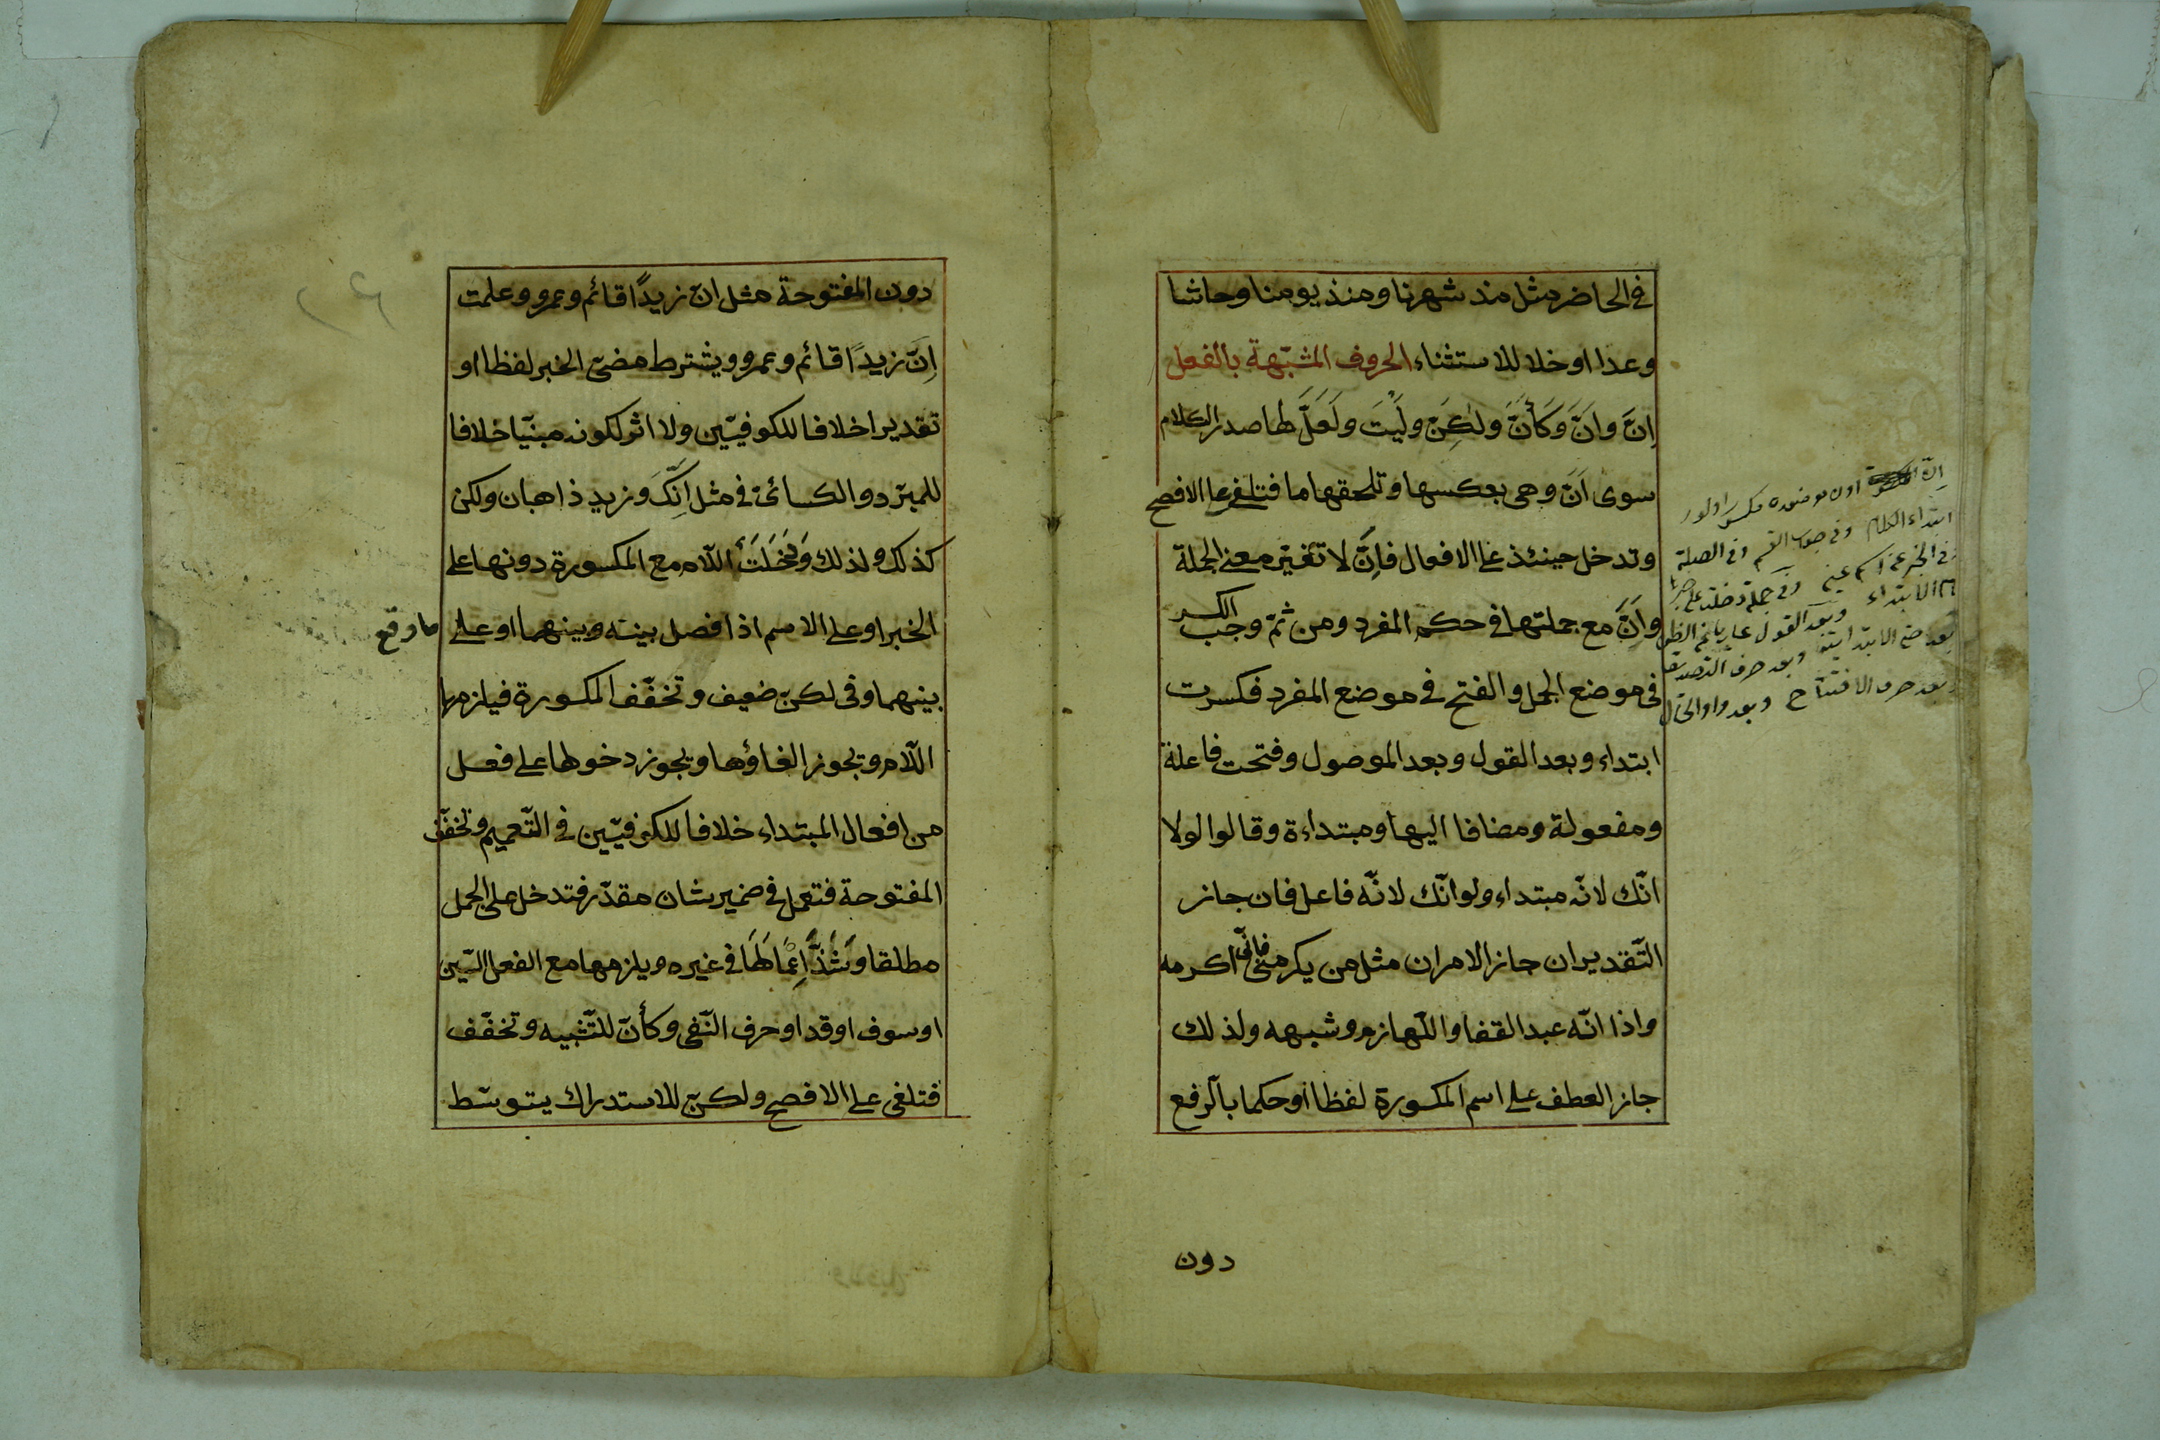 في الحاضر مثل مذ شهرنا ومنذ يومنا وحاشا
وعدا او خلا للاستثناء الحروف المشبّهة بالفعل
اِنَّ واَنَّ وَكَأَنَّ ولٰكِنَّ ولَيْتَ ولَعَلَّ لها صدر الكلام
سوى اَنَّ وهى بعكسها وتلحقها ما فتلغى على الافصح
وتدخل حينئذ على الافعال فاِنَّ لا تغيّر معنى الجملة
واَنَّ مع جملتها فى حكم المفرد ومن ثمّ وجب الكسر
فى موضع الجمل والفتح في موضع المفرد فكسرت
ابتداء وبعد القول وبعد الموصول وفتحت فاعلة
ومفعولة ومضافا اليها ومبتداءة وقالوا لولا
انّك لانّه مبتداء ولو انّك لانّه فاعل فان جاز
التّقديران جاز الامران مثل من يكرمنى فانّى اكرمه
واذا انّه عبد القفا واللّهازم وشبهه ولذلك
جاز العطف على اسم المكسورة لفظا او حكما بالرّفع
دون
ابتداء الكلام وفى جواب القسم وفى الصلة
وبعد حرف الافتتاح وبعد واو الحال
دون المفتوحة مثل انّ زيدًا قائم وعمرو وعلمت
اِنَّ زيدًا قائم وعمرو ويشترط مضىّ الخبر لفظا او
تقديرا خلافا للكوفيّين ولا اثر لكونه مبنيّا خلافا
للمبرّد والكسائىّ في مثل اِنّكَ وزيد ذاهبان ولكنّ
كذلك ولذلك وَدَخَلَتْ اللّام مع المكسورة دونها على
الخبر او على الاسم اذا فصل بينه وبينها او على
ما وقع
بينهما وفى لكنّ ضعيف وتخفّف المكسورة فيلزمها
اللّام ويجوز الغاؤها ويجوز دخولها على فعل
من افعال المبتداء خلافا للكوفيّين في التّعميم وتخفّف
المفتوحة فتعمل في ضمير شان مقدّر فتدخل على الجمل
مطلقا وَشَذَّ اِعْمَالُهَا في غيره ويلزمها مع الفعل السّين
او سوف او قد او حرف النّفى وكأنّ للتّشبيه وتخفّف
فتلغى على الافصح ولكنّ للاستدراك يتوسّط